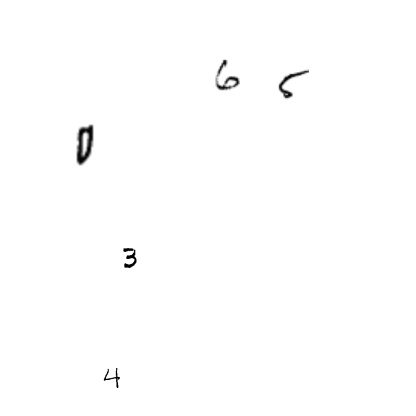 6 5
0
3
4